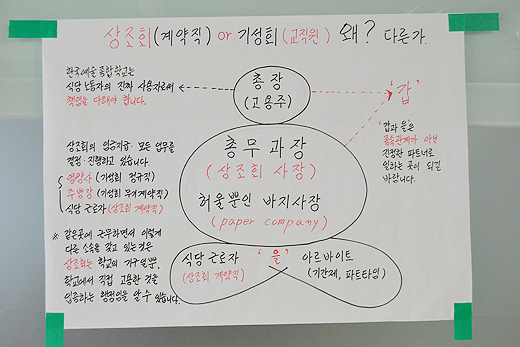 상조회(계약직) or 기성회(교직원) 왜? 다른가.
한국예술종합학교는
식당 노동자의 진짜 사용자로써
책임을 다해야 합니다.
총장
(고용주)
'갑'
'갑과 을'은
종속관계가 아닌
진정한 파트너로
일하는 곳이 되길
바랍니다.
상조회의 임금지급 모든 업무를
결정·진행하고 있습니다
영양사 (기성회 정규직)
주방장 (기성회 무기계약직)
식당 근로자 (상조회 계약직)
총무 과장
(상조회 사장)
허울뿐인 바지사장
(paper company)
※ 같은곳에 근무하면서 이렇게
다른 소속을 갖고 있는것은
상조회는 학교의 기구일뿐.
학교에서 직접 고용한 것을
입증하는 행정임을 알 수 있습니다.
식당 근로자
(상조회 계약직)
'을'
아르바이트
(기간제, 파트타임)